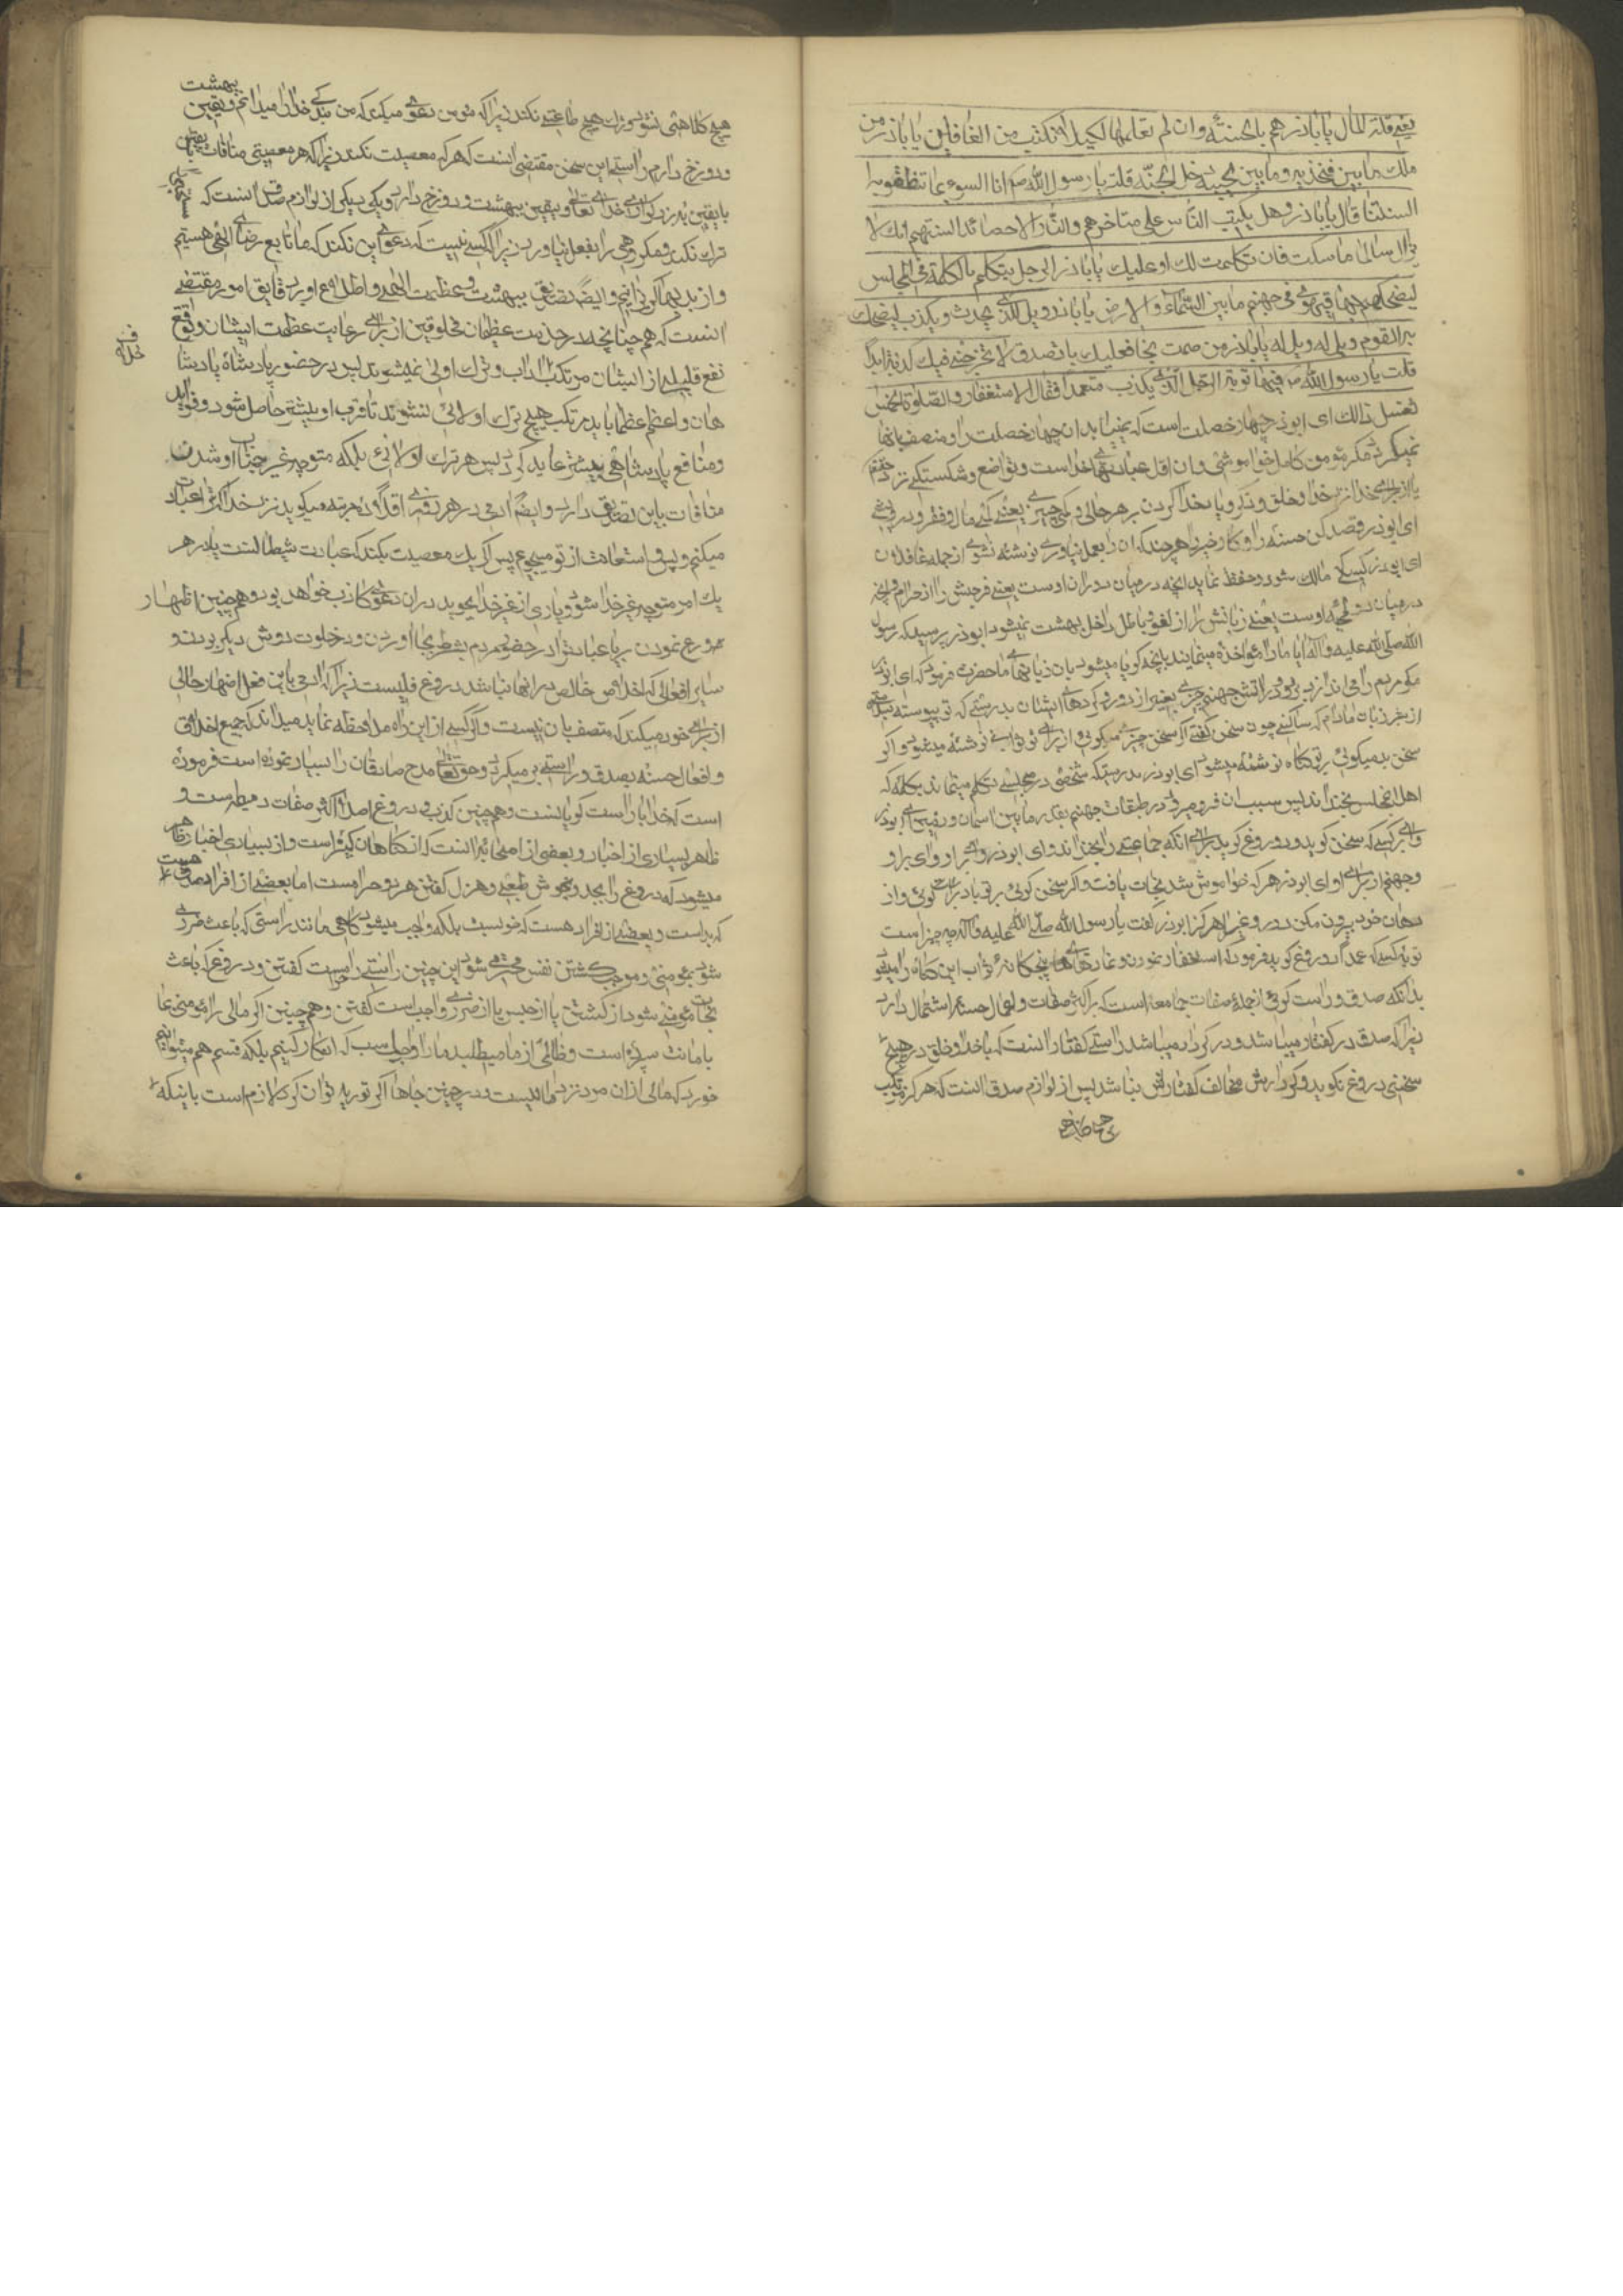 یعنی قلة المال یا اباذر هم بالحسنة و ان لم تعلمها لکیلا تکتب من الغافلین یا اباذر من
ملک ما بین فخذیه و ما بین لحییه دخل الجنة قلت یا رسول الله انا
السنتنا قال یا اباذر و هل یکب الناس علی مناخرهم فی النار الا حصائد السنتهم انک لا
تزال سالما ما سکت فان تکلمت لک او علیک یا اباذر ان الرجل یتکلم بالکلمة فی المجلس
لیضحکهم بها فیهوی فی جهنم ما بین السماء و الارض یا اباذر ویل للذی یحدث و یکذب لیضحک
به القوم ویل له ویل له یا اباذر من صمت نجا فعلیک بالصدق لا تخرجن من فیک کذبة ابدا
قلت یا رسول الله فما توبة الرجل الذی یکذب متعمدا فقال الاستغفار و الصلوة الخمس
تغسل ذالک ای ابوذر چهار خصلت است که نمییابد ان چهار خصلت را و متصف بانها
نمیگردد مگر مؤمن کامل خواموشی و ان اول عبادتهای خداست و تواضع و شکستگی نزد
خدا و خلق و ذکر و یاد خدا کردن بر هر حالی و کمی چیزی یعنی کمی مال و فقر و درویشی
ای ابوذر قصد کن حسنه را و کار خیر را هر چند که ان را بعمل نیاوری نوشته نشوی از جمله غافلان
ای ابوذر کسی که مالک شود و حفظ نماید انچه در میان دو ران اوست یعنی فرجش را از حرام و انچه
در میان دو لحیه اوست یعنی زبانش را از لغو و باطل داخل بهشت میشود ابوذر پرسید که رسول
الله صلی الله علیه و آله ایا ما را مؤاخذه مینمایند بانچه گویا میشود بان زبانهای ما حضرت فرمود که ای ابوذر
مگر مردم را می اندازد برو در اتش جهنم چیزی بغیر از درو کردهای ایشان بدرستی که تو پیوسته
از شر زبان مادام که ساکتی چون سخن گفتی اگر سخن خیر میگوئی از برای تو ثوابی نوشته میشود و اگر
سخن بد میگوئی بر تو گناه نوشته میشود ای ابوذر بدرستیکه شخصی در مجلسی تکلم مینماید بکلمه که
اهل ان مجلس بخندند پس بسبب ان فرو میرود در طبقات جهنم بقدر ما بین اسمان و زمین ای ابوذر
وای بر کسی که سخن گوید و دروغ گوید برای انکه جماعتی را بخنداند وای ابوذر وای بر او وای بر او
و جهنم از برای او ای ابوذر هر که خواموش شد نجات یافت و اگر سخن گوئی بر تو باد براست گوئی و از
دهان خود بیرون مکن دروغی را هرگز ابوذر گفت یا رسول الله صلی الله علیه و آله چه چیز است
توبه کسیکه عمدا دروغ گوید فرمود که استغفار نمودن و نمازهای پنجگانه ثواب این گناه را میشوید
بدانکه صدق و راست گوئی از جمله صفات جامعه است که بر اکثر صفات و اعمال حسنه اشتمال دارد
زیرا که صدق در گفتار میباشد و در کردار میباشد راستی گفتار انست که با خدا و خلق در هیچ
سخنی دروغ نگوید و کردارش مخالف گفتارش نباشد پس از لوازم صدق انست که هرگز مرتکب
هیچ گناهی نشود و ترک هیچ طاعتی نکند زیرا که مؤمن دعوی میکند که من بنده خدا را میدانم و یقین بهشت
و دوزخ دارم راستی این سخن مقتضی انست که هرگز معصیت نکند زیرا که هر معصیتی منافات
با یقین بزرگواری خدای تعالی و یقین بهشت و دوزخ دارد و یکی دیگر از لوازم صدق انست که
ترک نکند و مکروهی را بفعل نیاورد زیرا که کسی نیست که دعوی این نکند که ما تابع رضای الهی هستیم
و از بدیها گریزانیم و ایضا تصدیق ببهشت و عظمت الهی و اطلاع او بر دقایق امور مقتضی
انست که هم چنانچه در خدمت عظیمان مخلوقین از برای رعایت عظمت ایشان و توقع
نفع قلیلی از ایشان مرتکب آداب و ترک اولی نمیشوند پس در حضور پادشاه پادشا
هان و اعظم عظما باید مرتکب هیچ ترک اولائی نشوند تا قرب او بیشتر حاصل شود و فواید
و منافع پادشاهی بیشتر عاید گردد پس هر ترک اولائی بلکه متوجه غیر جناب او شدن
منافات باین تصدیق دارد و ایضا ادمی در هر روزی اقلا ده مرتبه میگوید نزد خدا که ترا عبادت
میکنم و بس و استعانت از تو میجویم پس اگر یک معصیت بکند که عبادت شیطانست یا در هر
یک امر متوجه غیر خدا شود و یاری از غیر خدا بجوید در ان دعوی کاذب خواهد بود و هم چنین اظهار
ورع نمودن بریا عبادتها در حضور مردم بشرط بجا اوردن و در خلوت بروش دیگر بودن و
سایر افعالی که اخلاص خالص در انها نباشد دروغ فعلیست زیرا که ادمی باین فعل اظهار حالی
از برای خود میکند که متصف بان نیست و اگر کسی از این راه ملاحظه نماید میداند که جمیع اخلاق
و افعال حسنه بصدق و راستی بر میگردد و حق تعالی مدح صادقان را بسیار نموده است فرموده
است که خدا با راست گویانست و هم چنین کذب و دروغ اصل اکثر صفات ذمیمه است و
ظاهر بسیاری از اخبار و بعضی از اصحاب انست که از گناهان کبیره است و از بسیاری اخبار ظاهر
میشود که دروغ را بجد و بخوش طبعی و هزل گفتن هر دو حرامست اما بعضی از افراد صدق هست
که بد است و بعضی از افراد دروغ هست که خوبست بلکه واجب میشود گاهی مانند راستی که باعث ضرری
شود بمؤمنی و موجب کشتن نفس محترمی شود این چنین راستی حرامست گفتن و دروغی که باعث
نجات مؤمنی شود از کشتن یا از حبس یا از ضرری واجب است گفتن و هم چنین اگر مالی را مؤمنی بما
بامانت سپرده است و ظالمی از ما میطلبد ما را واجب است که انکار کنیم بلکه قسم هم میتوانیم
خورد که مالی از ان مرد نزد ما نیست و در چنین جاها اگر توریه توان کرد لازم است باینکه